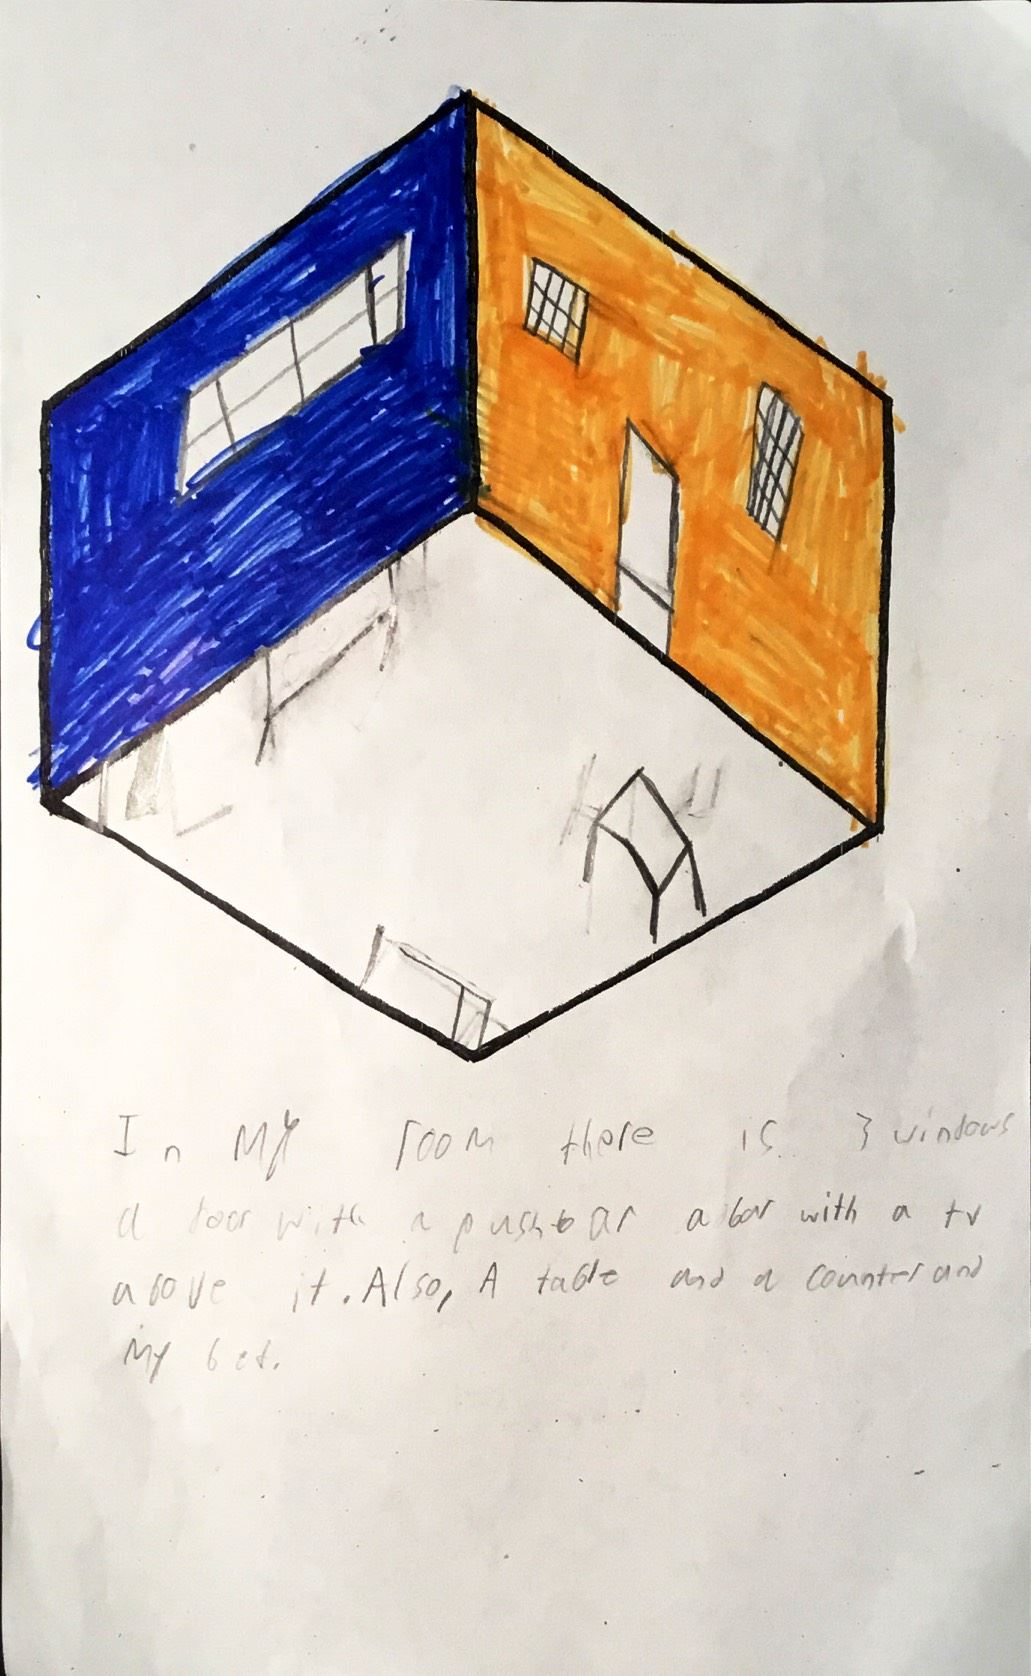 In My room there is 3 windows
a door with a pushbar a bar with a tv
above it. Also, A table and a counter and
My bed.